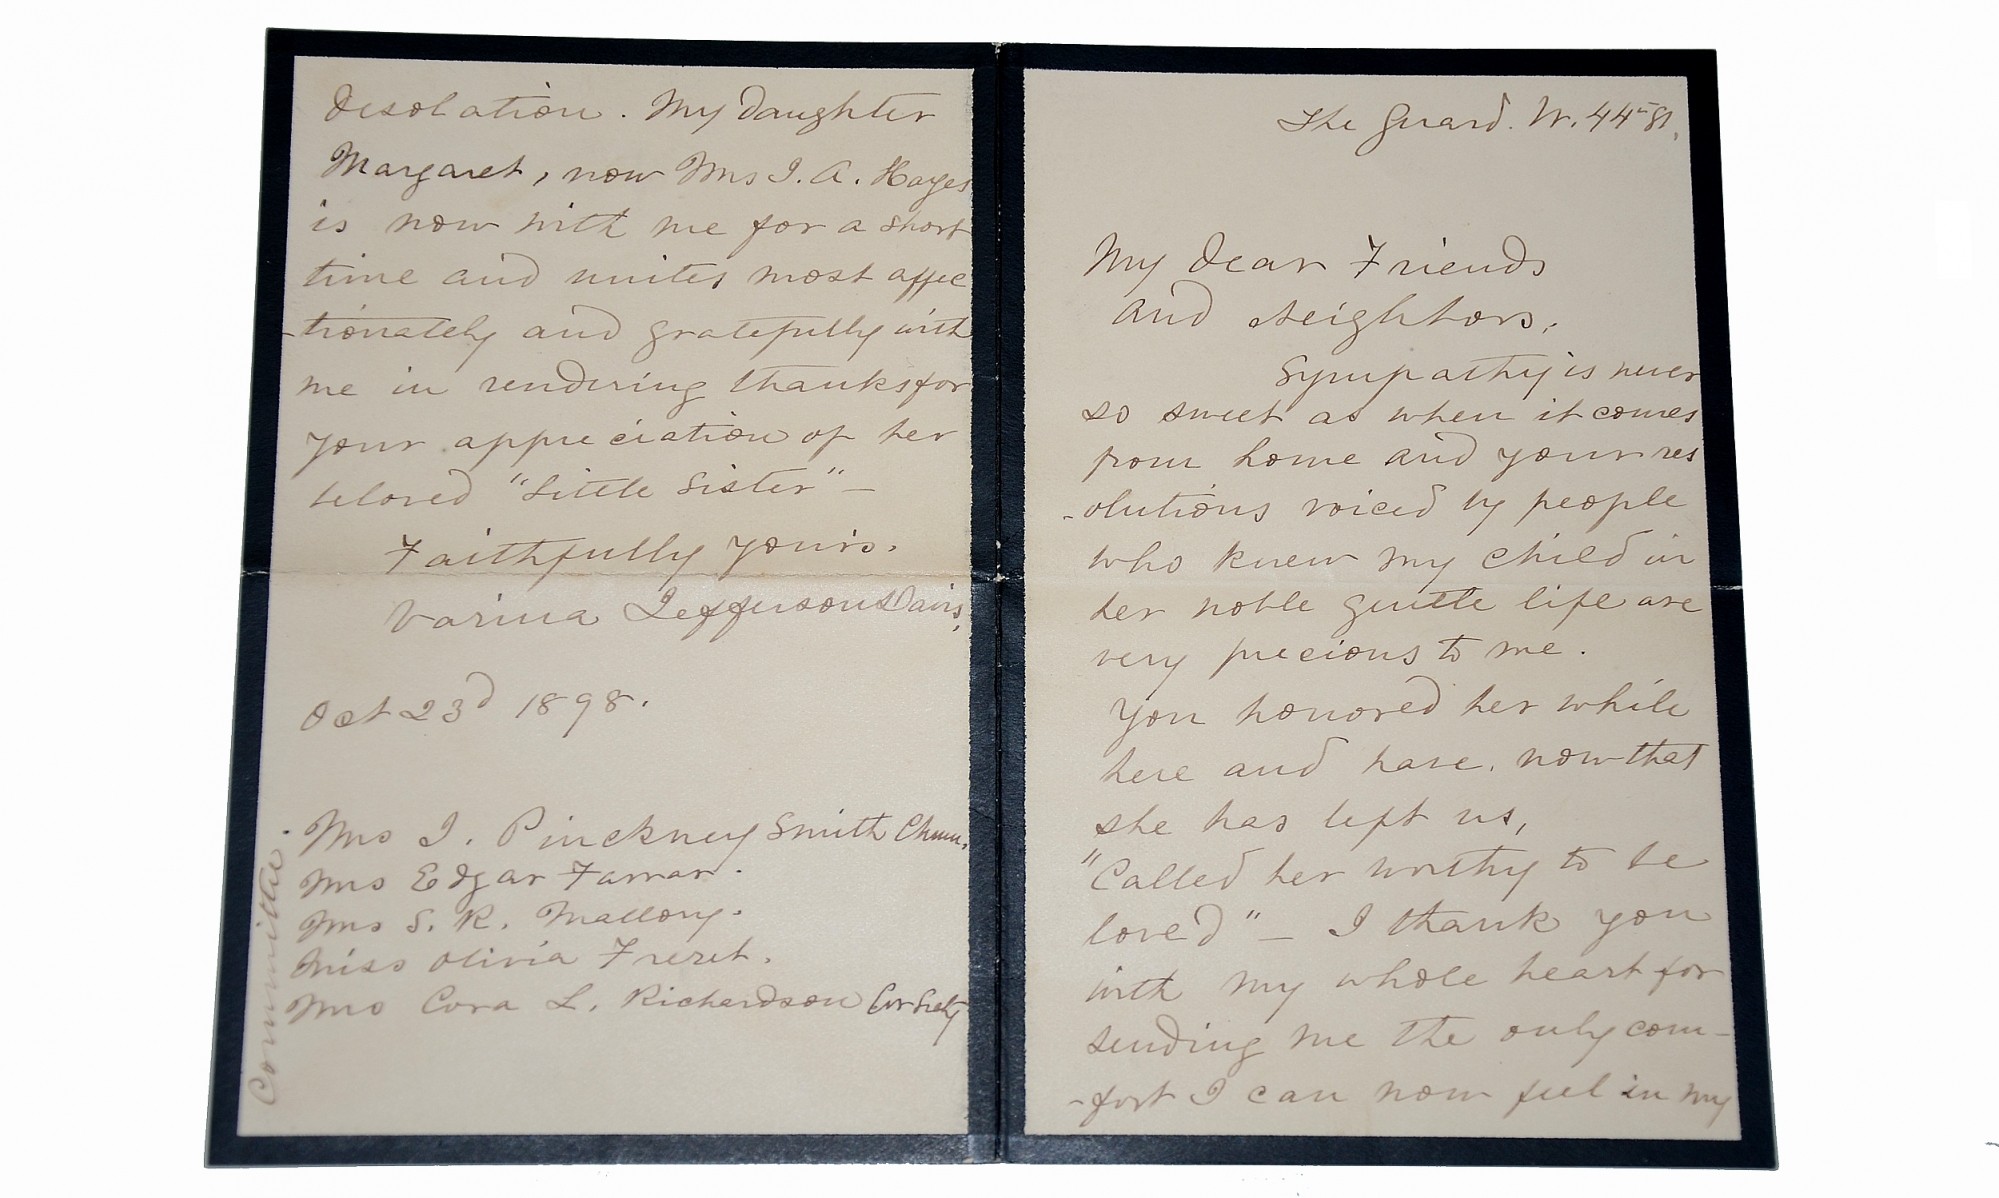 The Gerard. W. 44th St.
My Dear Friends
and Neighbors,
Sympathy is never
so sweet as when it comes
from home and your res
-olutions voiced by people
who knew my child in
her noble gentle life are
very precious to me.
You honored her while
here and have, now that
she has left us,
"Called her worthy to be
loved" – I thank you
with my whole heart for
sending me the only com-
-fort I can now feel in my
Desolation. My Daughter
Margaret, now Mrs J. A. Hayes
is now with me for a short
time and unites most affec
-tionately and gratefully with
me in rendering thanks for
your appreciation of her
beloved "Little Sister" –
Faithfully yours.
Varina Jefferson Davis.
Oct 23d 1898.
Mrs J. Pinckney Smith Chmn.
Mrs Edgar Farrar.
Mrs S. R. Mallory.
Miss Olivia Freret.
Mrs Cora L. Richardson Cor Secty
Committee.